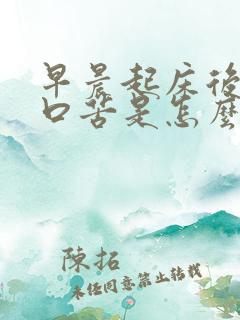 早晨起床後
口苦是怎麼
陳拓
未经同意禁止转载